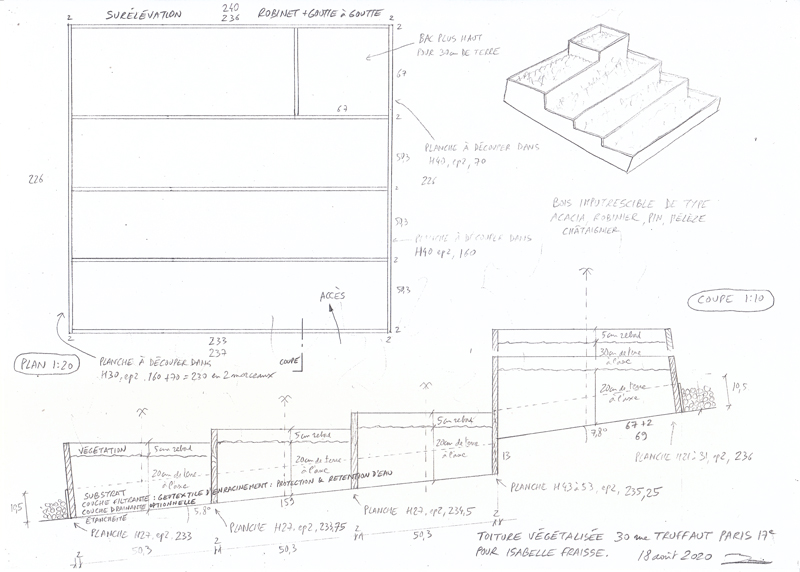 2
SURÉLÉVATION
240
236
ROBINET + GOUTTE à GOUTTE
2
2
BAC PLUS HAUT
POUR 30cm DE TERRE
67
67
2
PLANCHE À DÉCOUPER DANS
H40, ep2, 70
226
226
57,3
2
57,3
PLANCHE À DÉCOUPER DANS
H40 ep2, 160
2
57,3
BOIS IMPUTRESCIBLE DE TYPE
ACACIA, ROBINIER, PIN, MÉLÈZE
CHÂTAIGNER
ACCÈS
2
2
2
233
237
COUPE
PLAN 1:20
PLANCHE À DÉCOUPER DANS
H30, ep2. 160+70 = 230 en 2 morceaux
COUPE 1:10
5cm rebord
30cm de terre
à l'axe
20cm de terre
à l'axe
10,5
7,8°
67+2
69
PLANCHE H21 à 31, ep2, 236
13
PLANCHE H43 à 53, ep2, 235,25
VÉGÉTATION
5cm rebord
5cm rebord
5cm rebord
20cm de terre
à l'axe
20cm de terre
à l'axe
20cm de terre
à l'axe
SUBSTRAT
COUCHE FILTRANTE : GEOTEXTILE D'ENRACINEMENT : PROTECTION & RETENTION D'EAU
COUCHE DRAINANTE OPTIONNELLE
ÉTANCHEITÉ
10,5
5,8°
159
PLANCHE H27, ep2, 233
PLANCHE H27, ep2, 233,75
PLANCHE H27, ep2, 234,5
2
50,3
2
50,3
2
50,3
2
TOITURE VÉGÉTALISÉE 30 rue TRUFFAUT PARIS 17e
POUR ISABELLE FRAISSE. 18 août 2020